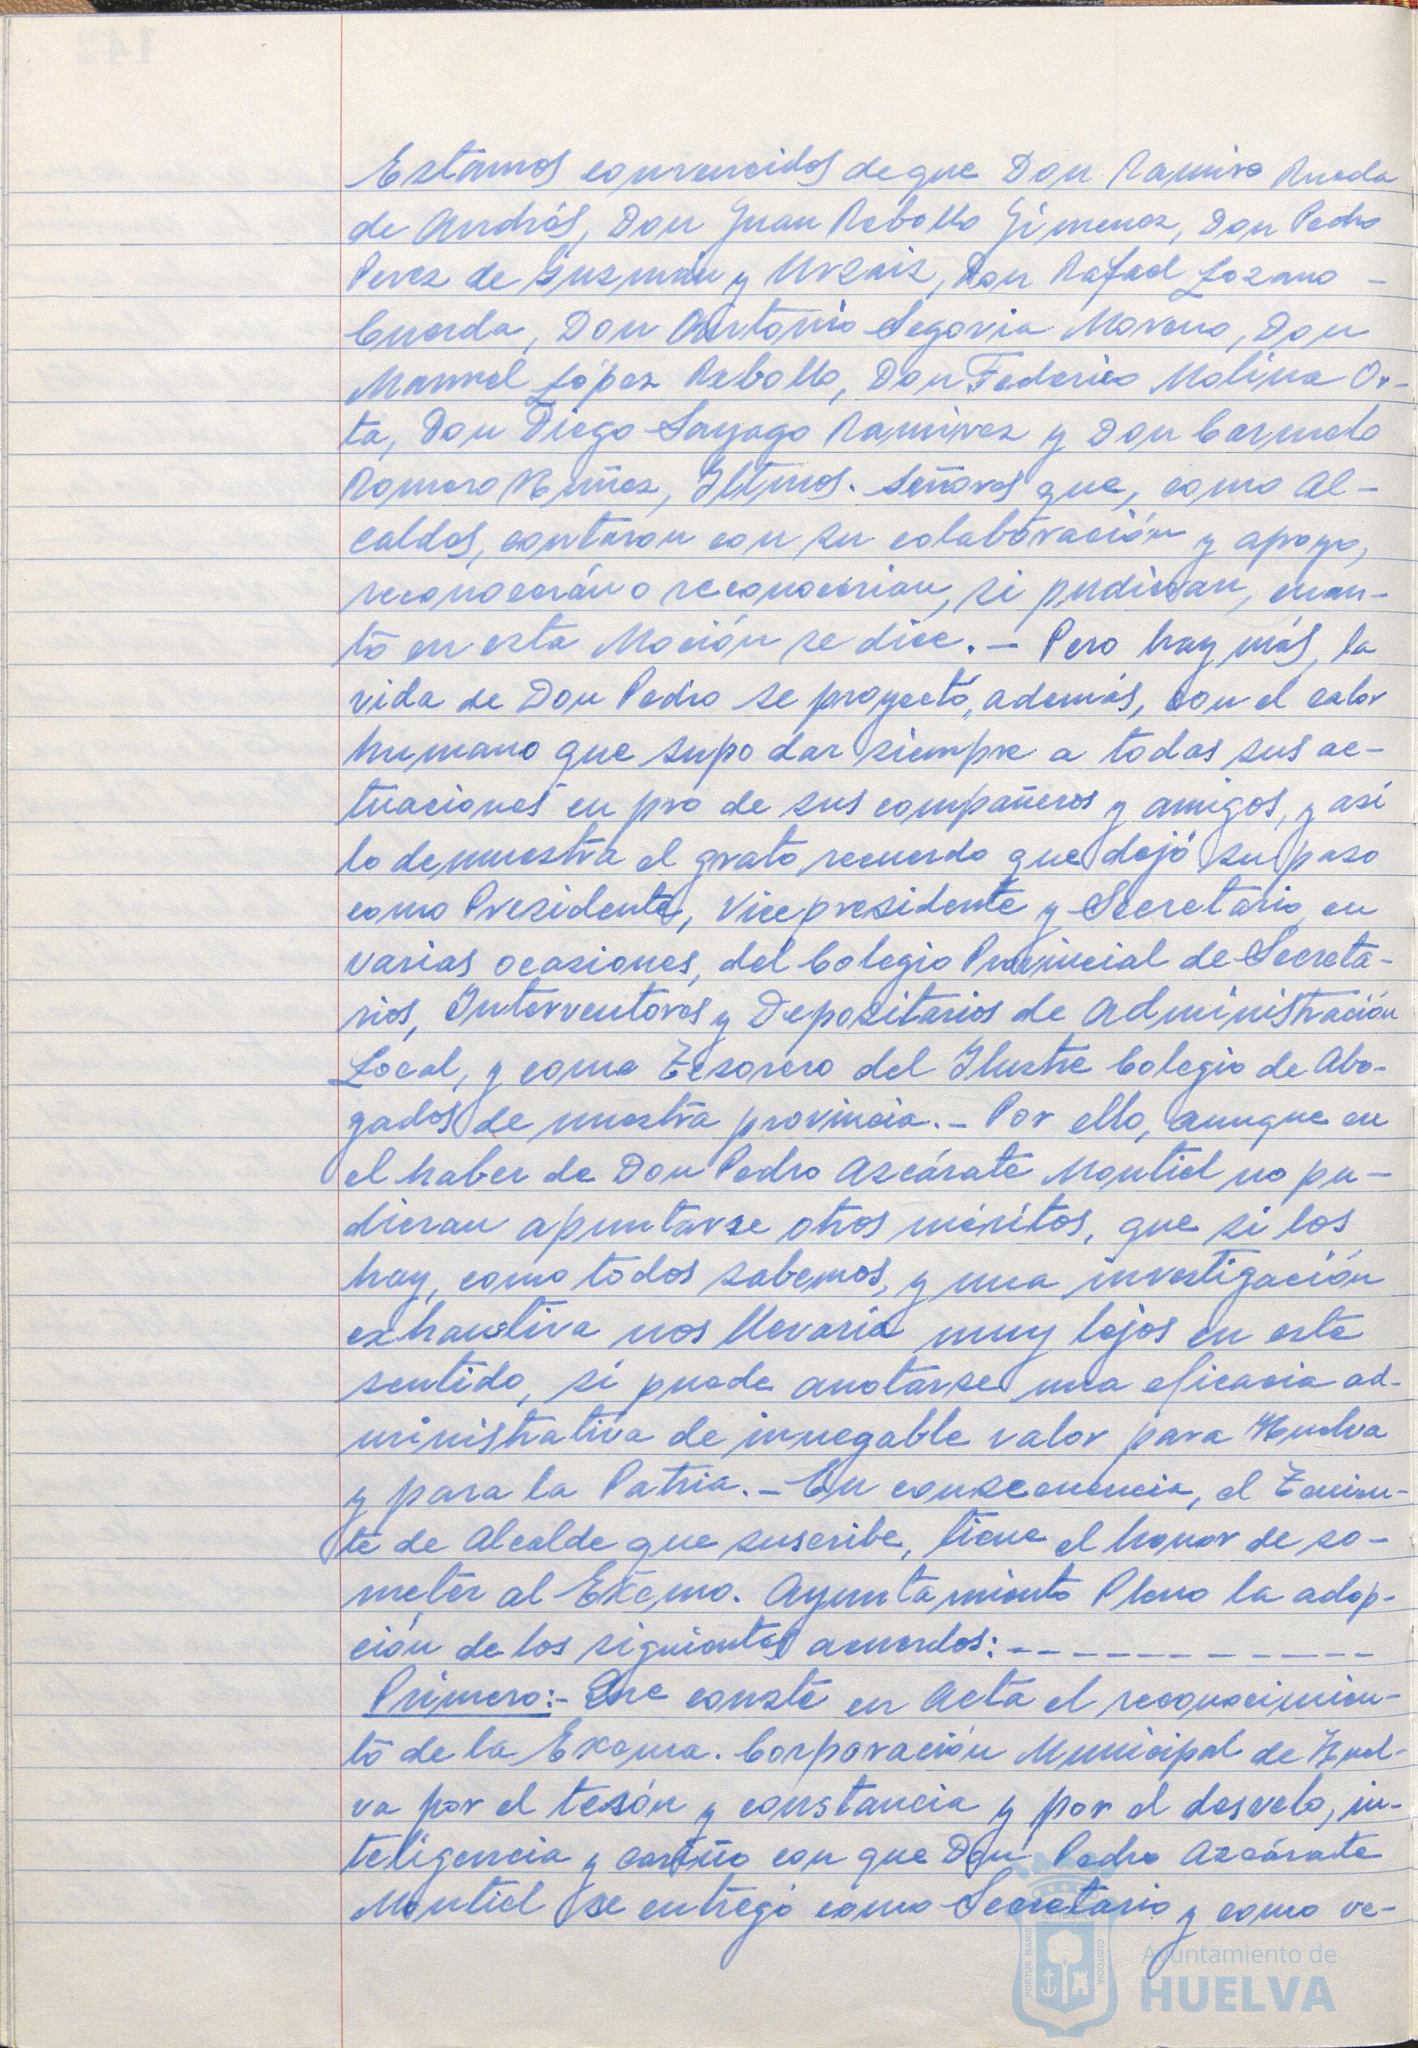 Estamos convencidos de que Don Ramiro Rueda
de Andrés, Don Juan Rebollo Gimenez, Don Pedro
Perez de Guzmán y Urzaiz, Don Rafael Lozano
Cuerda, Don Antonio Segovia Moreno, Don
Manuel López Rebollo, Don Federico Molina Or-
ta, Don Diego Sayago Ramirez y Don Carmelo
Romero Nuñez, Iltmos. Señores que, como Al-
caldes, contaron con su colaboración y apoyo,
reconocerán o reconocerian, si pudieran, cuan-
to en esta Moción se dice.- Pero hay más, la
vida de Don Pedro se proyectó, además, con el calor
humano que supo dar siempre a todas sus ac-
tuaciones en pro de sus compañeros y amigos, y así
lo demuestra el grato recuerdo que dejó su paso
como Presidente, Vicepresidente y Secretario, en
varias ocasiones, del Colegio Provincial de Secreta-
rios, Interventores y Depositarios de Administración
Local, y como Tesorero del Ilustre Colegio de Abo-
gados de nuestra provincia.- Por ello, aunque en
el haber de Don Pedro Azcárate Montiel no pu-
dieran apuntarse otros méritos, que si los
hay, como todos sabemos, y una investigación
exhaustiva nos llevaria muy lejos en este
sentido, si puede anotarse una eficacia ad-
ministrativa de innegable valor para Huelva
y para la Patria.- En consecuencia, el Tenien-
te de Alcalde que suscribe, tiene el honor de so-
meter al Excmo. Ayuntamiento Pleno la adop-
ción de los siguientes acuerdos:- - - - - - - - - - - -
Primero:- Que conste en Acta el reconocimien-
to de la Excma. Corporación Municipal de Huel-
va por el tesón y constancia y por el desvelo, in-
teligencia y cariño con que Don Pedro Azcárate
Montiel se entregó como Secretario y como ve-
PORTUS MARIS
CUSTODIA
Ayuntamiento de
HUELVA